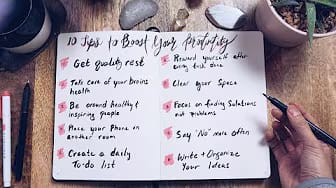 10 Tips to Boost Your Productivity
Get quality rest
Take care of your brains
health
Be around healthy +
inspiring people
Place your Phone on
another room
Create a daily
To-do list
Reward yourself after
every task done
Clear your Space
Focus on finding Solutions
not problems
Say "No" more often
Write + Organize
Your Ideas